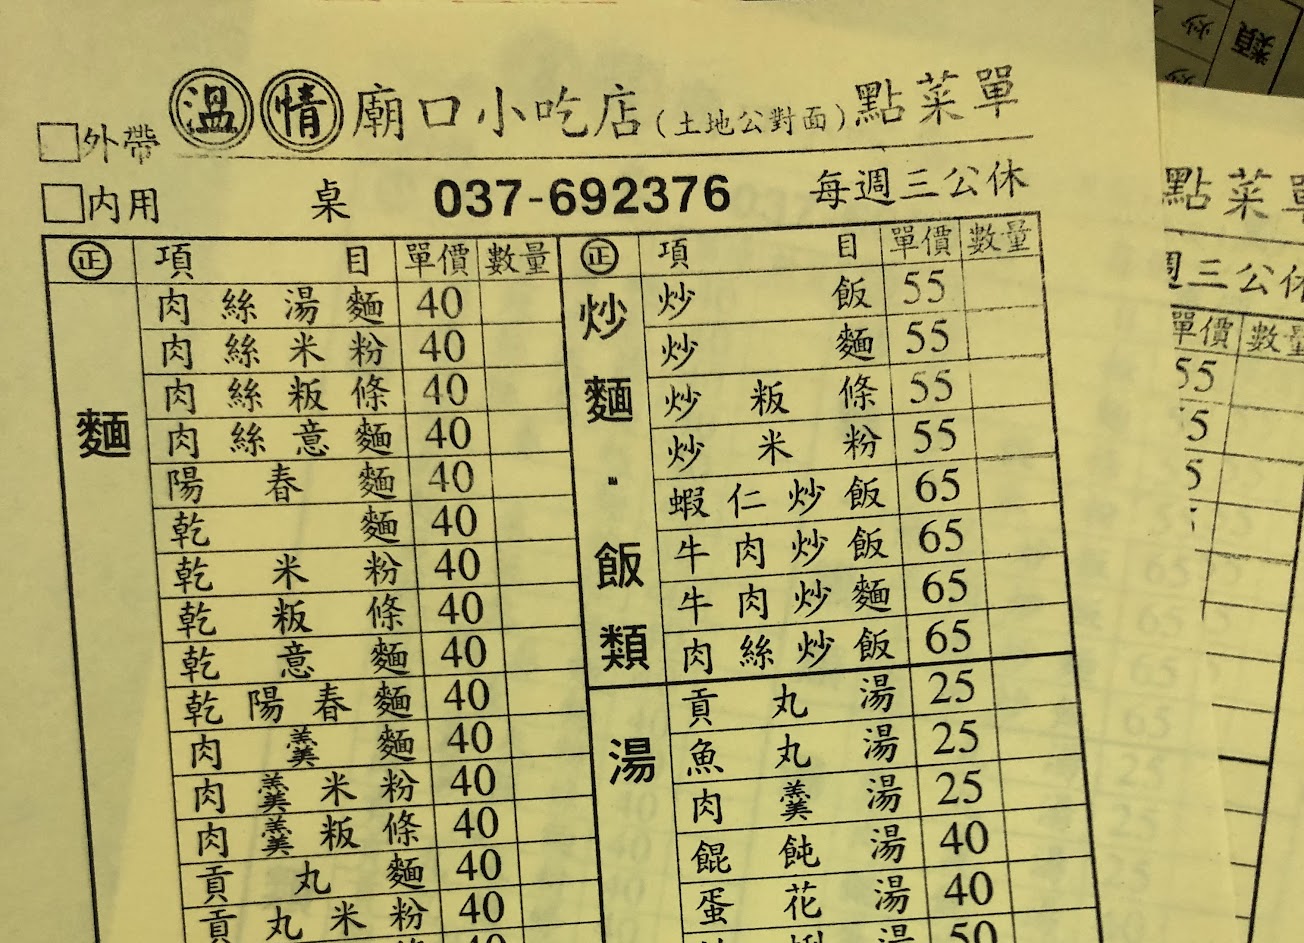 溫情廟口小吃店(土地公對面)點菜單
□外帶
□內用 桌 037-692376 每週三公休
正 項目 單價 數量
麵
肉絲湯麵 40
肉絲米粉 40
肉絲粄條 40
肉絲意麵 40
陽春麵 40
乾麵 40
乾米粉 40
乾粄條 40
乾意麵 40
乾陽春麵 40
肉羹麵 40
肉羹米粉 40
肉羹粄條 40
貢丸麵 40
貢丸米粉 40
正 項目 單價 數量
炒麵.飯類
炒飯 55
炒麵 55
炒粄條 55
炒米粉 55
蝦仁炒飯 65
牛肉炒飯 65
牛肉炒麵 65
肉絲炒飯 65
湯
貢丸湯 25
魚丸湯 25
肉羹湯 25
餛飩湯 40
蛋花湯 40
湯 50
類
炒
點菜單
週三公休
單價 數量
55
5
5